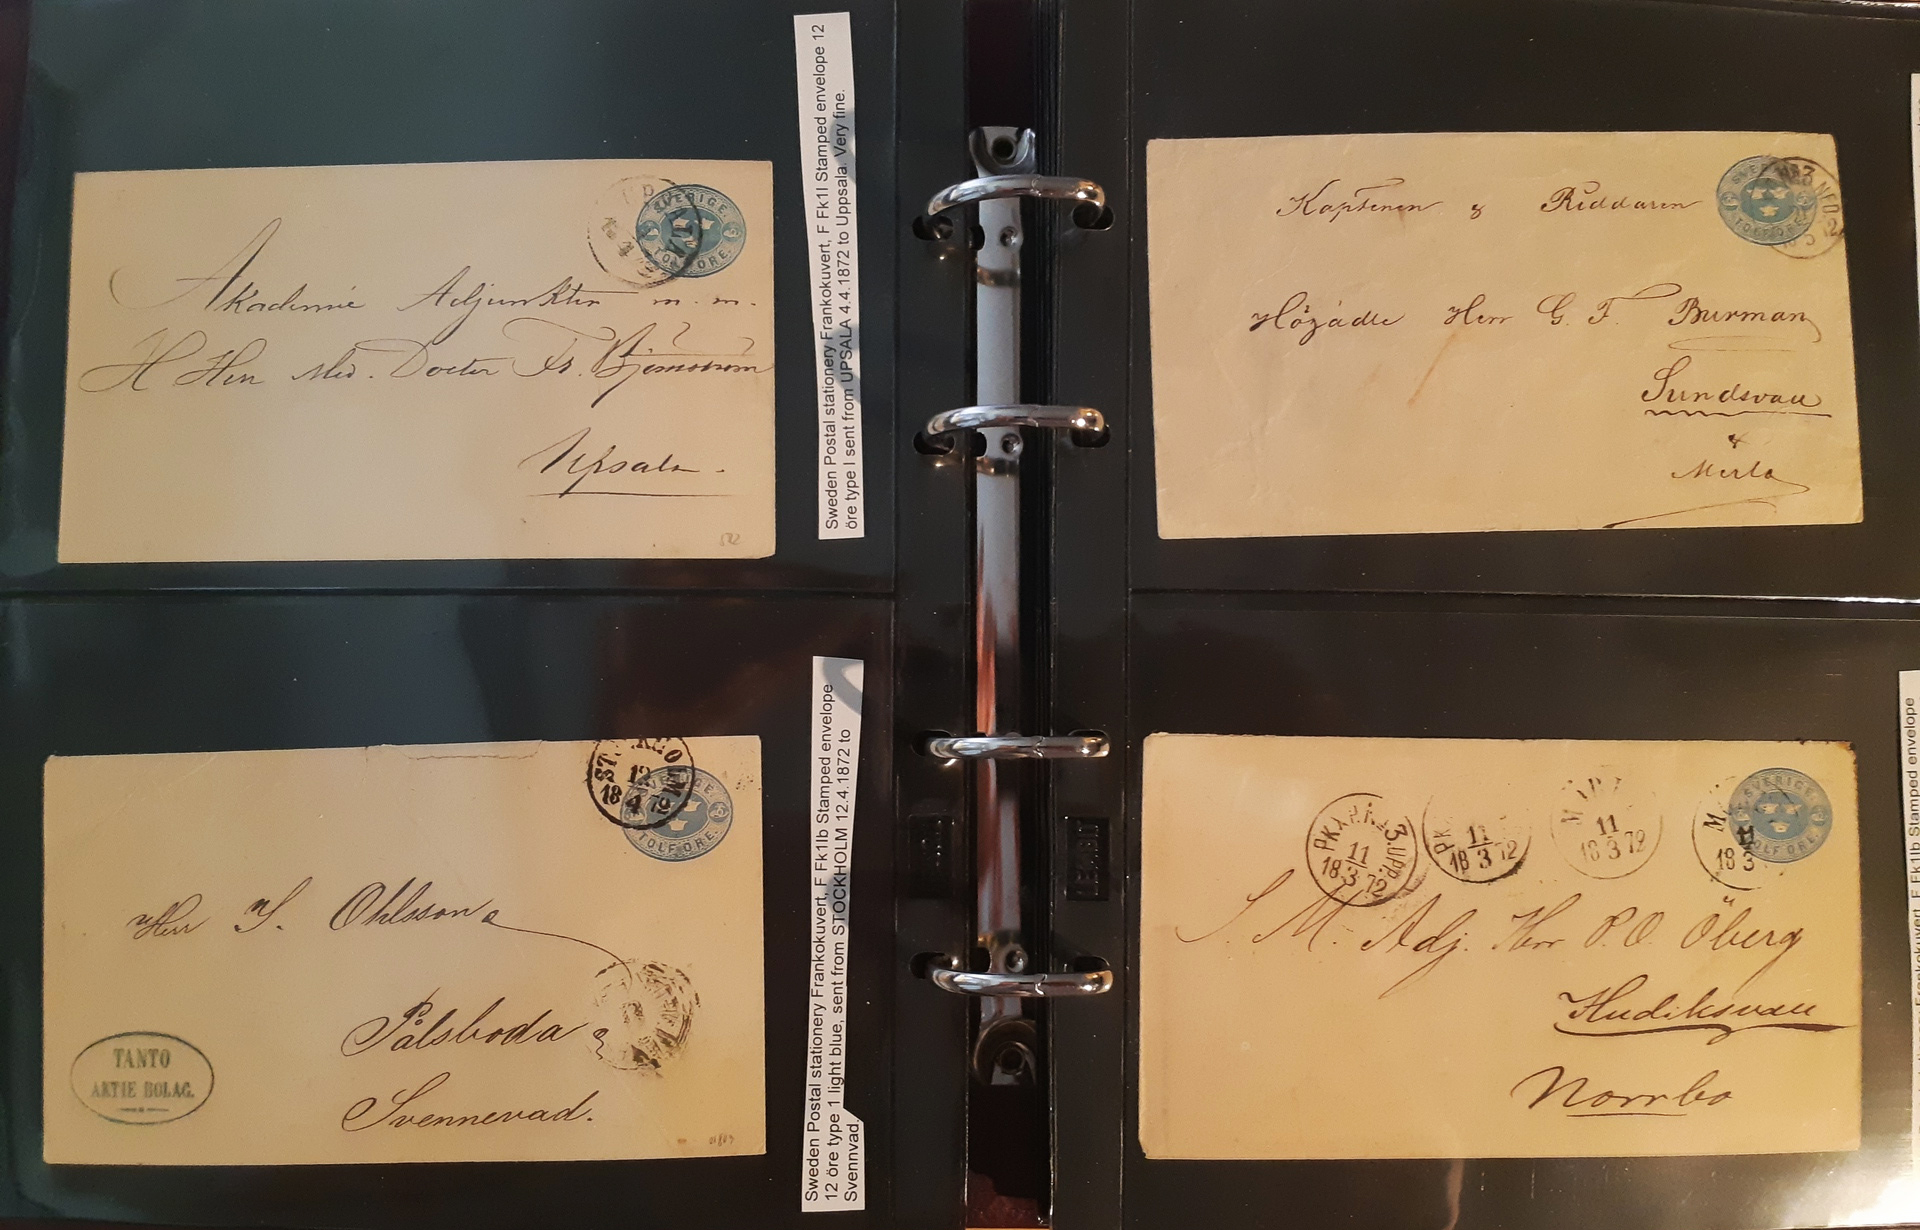 SVERIGE.
TOLF ÖRE.
Akademie Adjunkten m. m.
H Herr Med. Doctor Fr. Björnström
Upsala.
Sweden Postal stationery Frankokuvert, F Fk1I Stamped envelope 12
öre type I sent from UPSALA 4.4.1872 to Uppsala. Very fine.
STOCKHOLM
12
18 4 72
TOLF ÖRE.
Herr J. Ohlsson
Pålsboda
Svennevad.
TANTO
AKTIE BOLAG.
Sweden Postal stationery Frankokuvert, F Fk1Ib Stamped envelope
12 öre type 1 light blue, sent from STOCKHOLM 12.4.1872 to
Svennvad.
Kaptenen & Riddaren
Högädle Herr G. F. Burman
Sundsvall
&
Merlo
PKXP.N 3.UPP.
11
18 3 72
11
18 3 72
11
18 3 72
11
18 3
SVERIGE.
TOLF ÖRE.
S. M. Adj. Herr P. O. Öberg
Hudiksvall
Norrbo
Frankokuvert, F Fk1Ib Stamped envelope